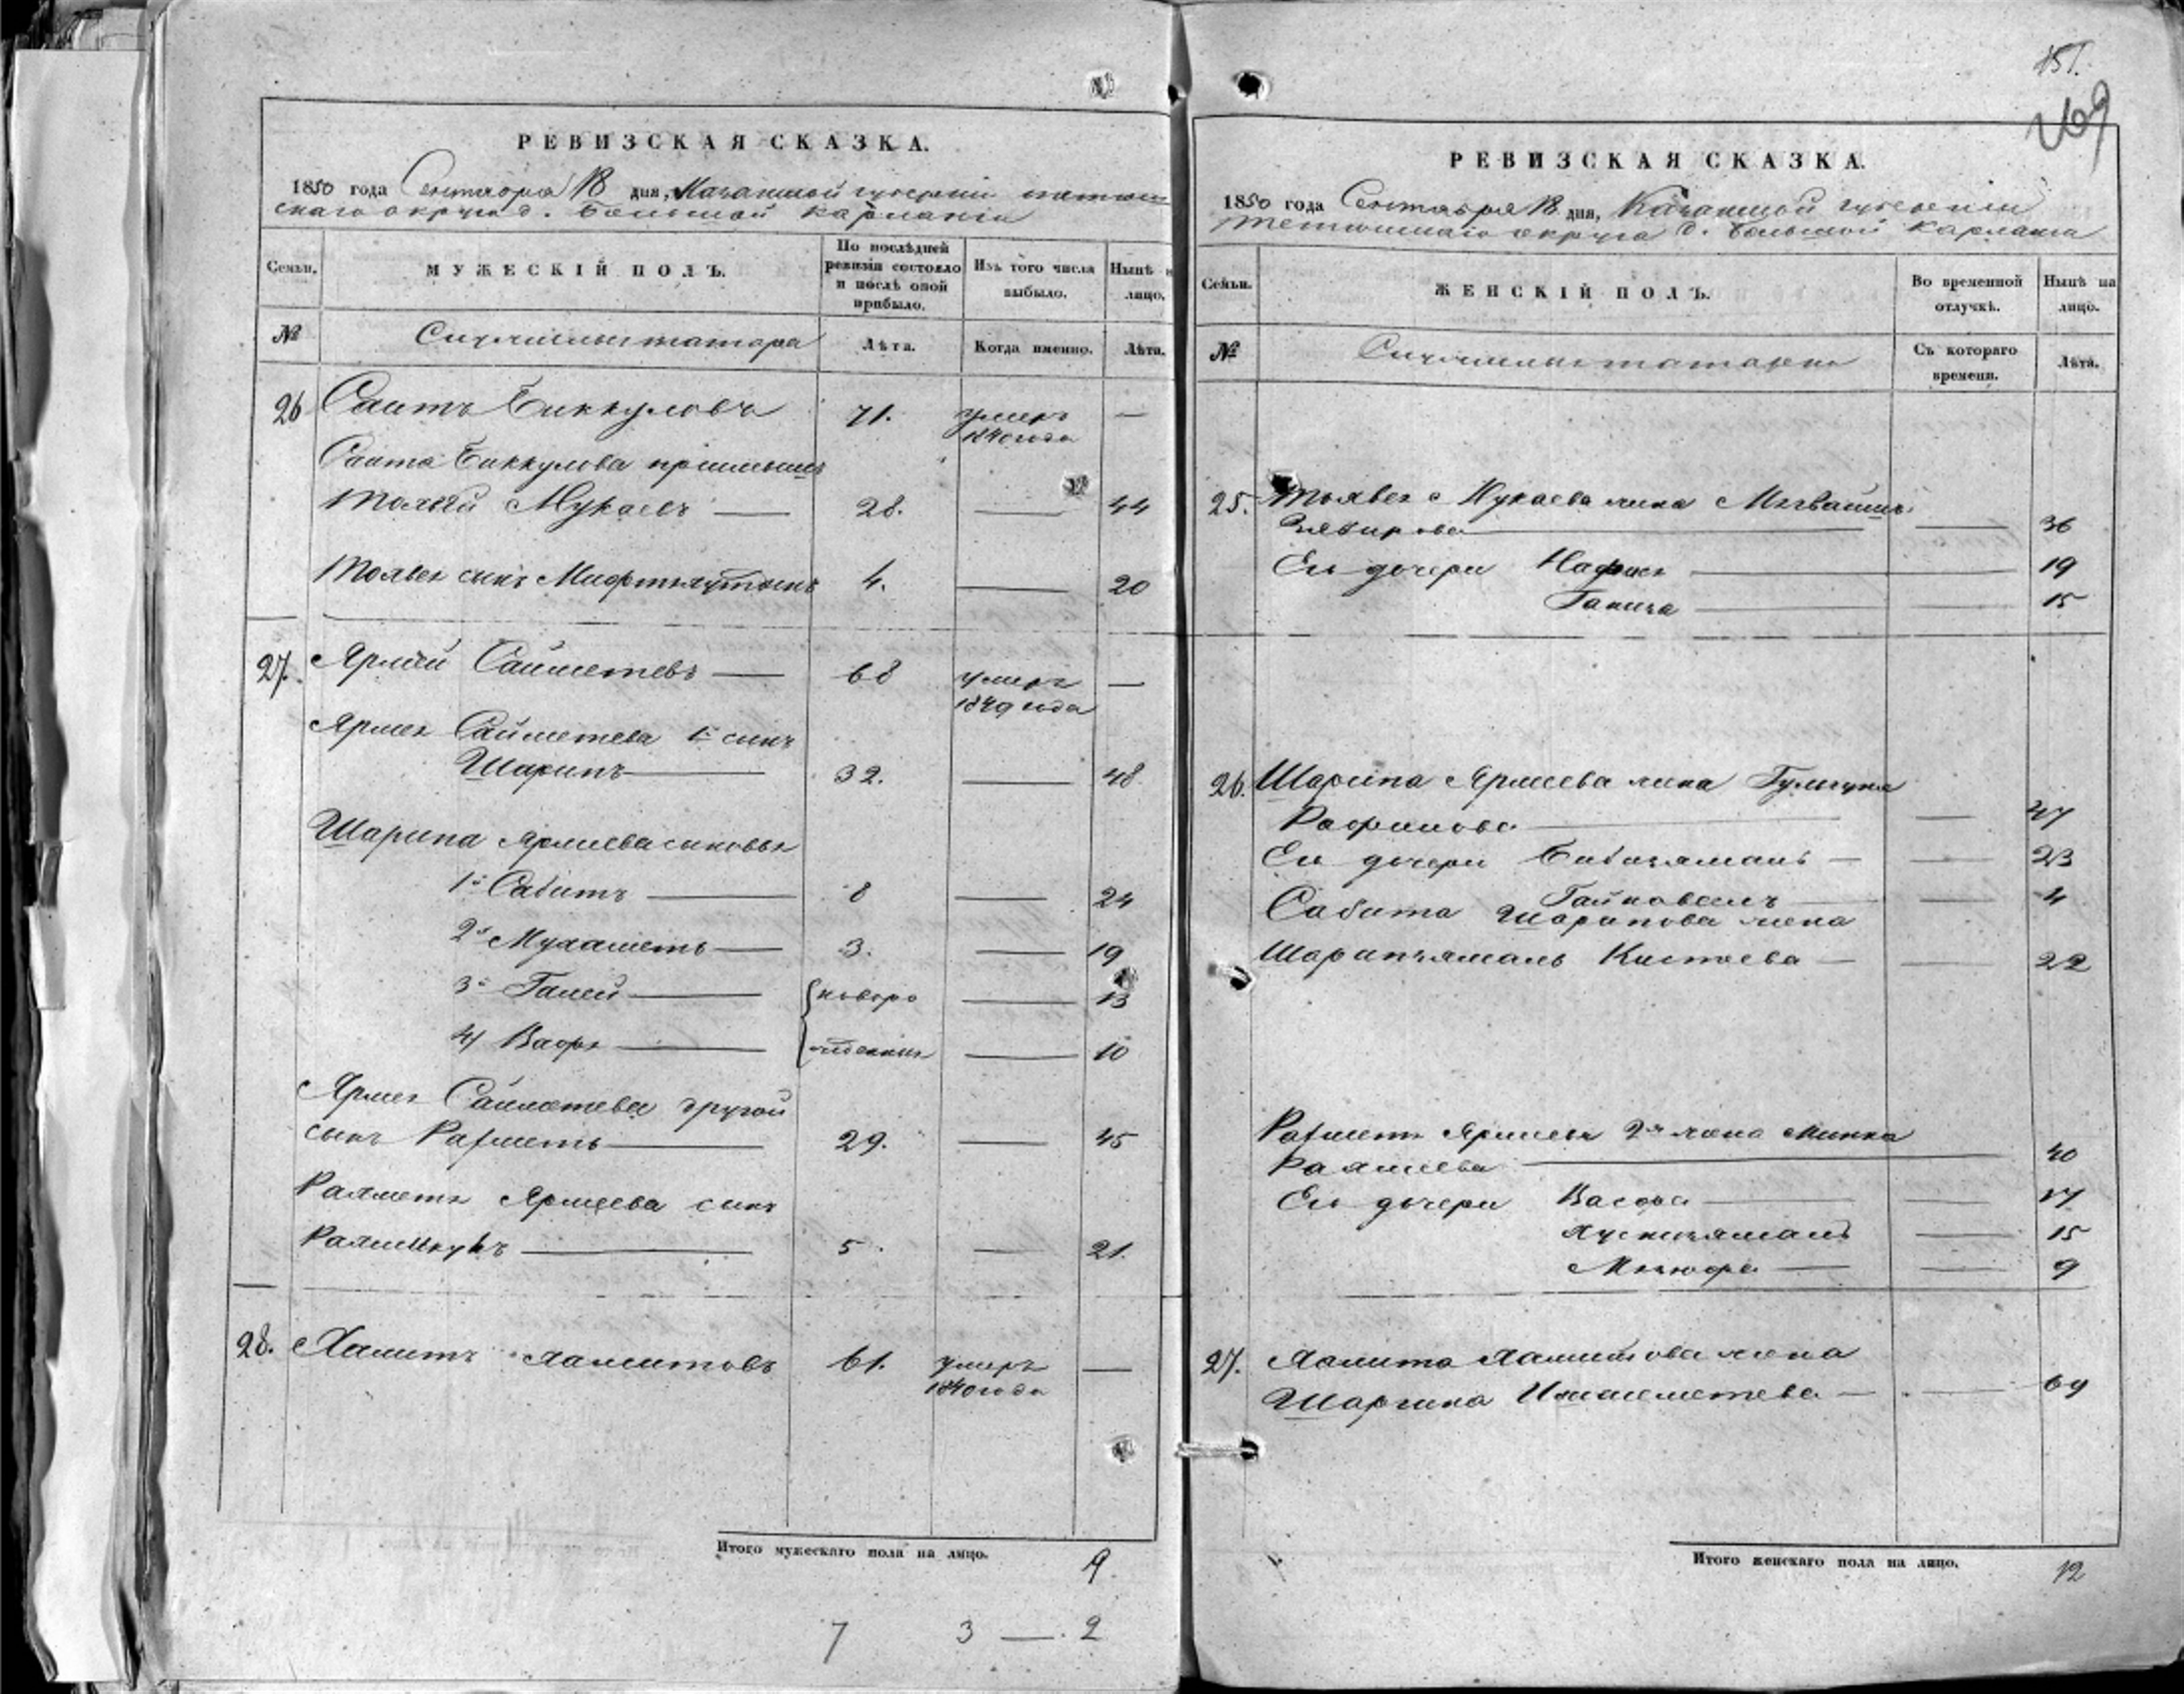 РЕВИЗСКАЯ СКАЗКА.
1850 года Сентября 18 дня, Казанской губерніи
скаго округа д. Большой Карланги
Семьи.
МУЖЕСКІЙ ПОЛЪ.
По послѣдней ревизіи состояло и послѣ оной прибыло.
Изъ того числа выбыло.
Нынѣ на лицо.
№
татара
Лѣта.
Когда именно.
Лѣта.
26 Саитъ Биккуловъ 71. умеръ 1840 года —
Саита Биккулова пріимышъ
Мукаевъ — 28. — 44
сынъ 4. — 20
27. Ярмей Сайметевъ — 68 умеръ 1849 года —
Ярмея Сайметева 1й сынъ
Шарипъ — 32. — 48
Шарипа Ярмеева сыновья
1й Сабитъ — 8 — 24
2й Мухаметь — 3. — 19
3й Галей — {новоро — 13
4й — {жденны — 10
Ярмея Сайметева другой
сынъ Рахметь — 29. — 45
Рахметя Ярмеева сынъ
Рахманкулъ — 5. — 21.
28. Хамитъ Халитовъ 61. умеръ 1840 года —
Итого мужескаго пола на лицо. 9
7 3 — 2
151.
169
РЕВИЗСКАЯ СКАЗКА.
1850 года Сентября 18 дня, Казанской губерніи
Тетюшскаго округа д. Большой Карланги
Семьи.
ЖЕНСКІЙ ПОЛЪ.
Во временной отлучкѣ.
Нынѣ на лицо.
№
татарки
Съ котораго времени.
Лѣта.
25. Мукаева жена
— — 36
Ея дочери Нафиса — 19
Ганиза — 15
26. Шарипа Ярмеева жена
— — 47
Ея дочери Бибизямалъ — — 23
— 4
Сабита Шарипова жена
Шарипзямаль — — 22
Рахметя Ярмеева 2я жена Минка
— 40
Ея дочери Васфа — — 17
Хуснизямалъ — 15
— — 9
27. Хамита Халитова жена
Ишмаметева — — 69
Итого женскаго пола на лицо. 12